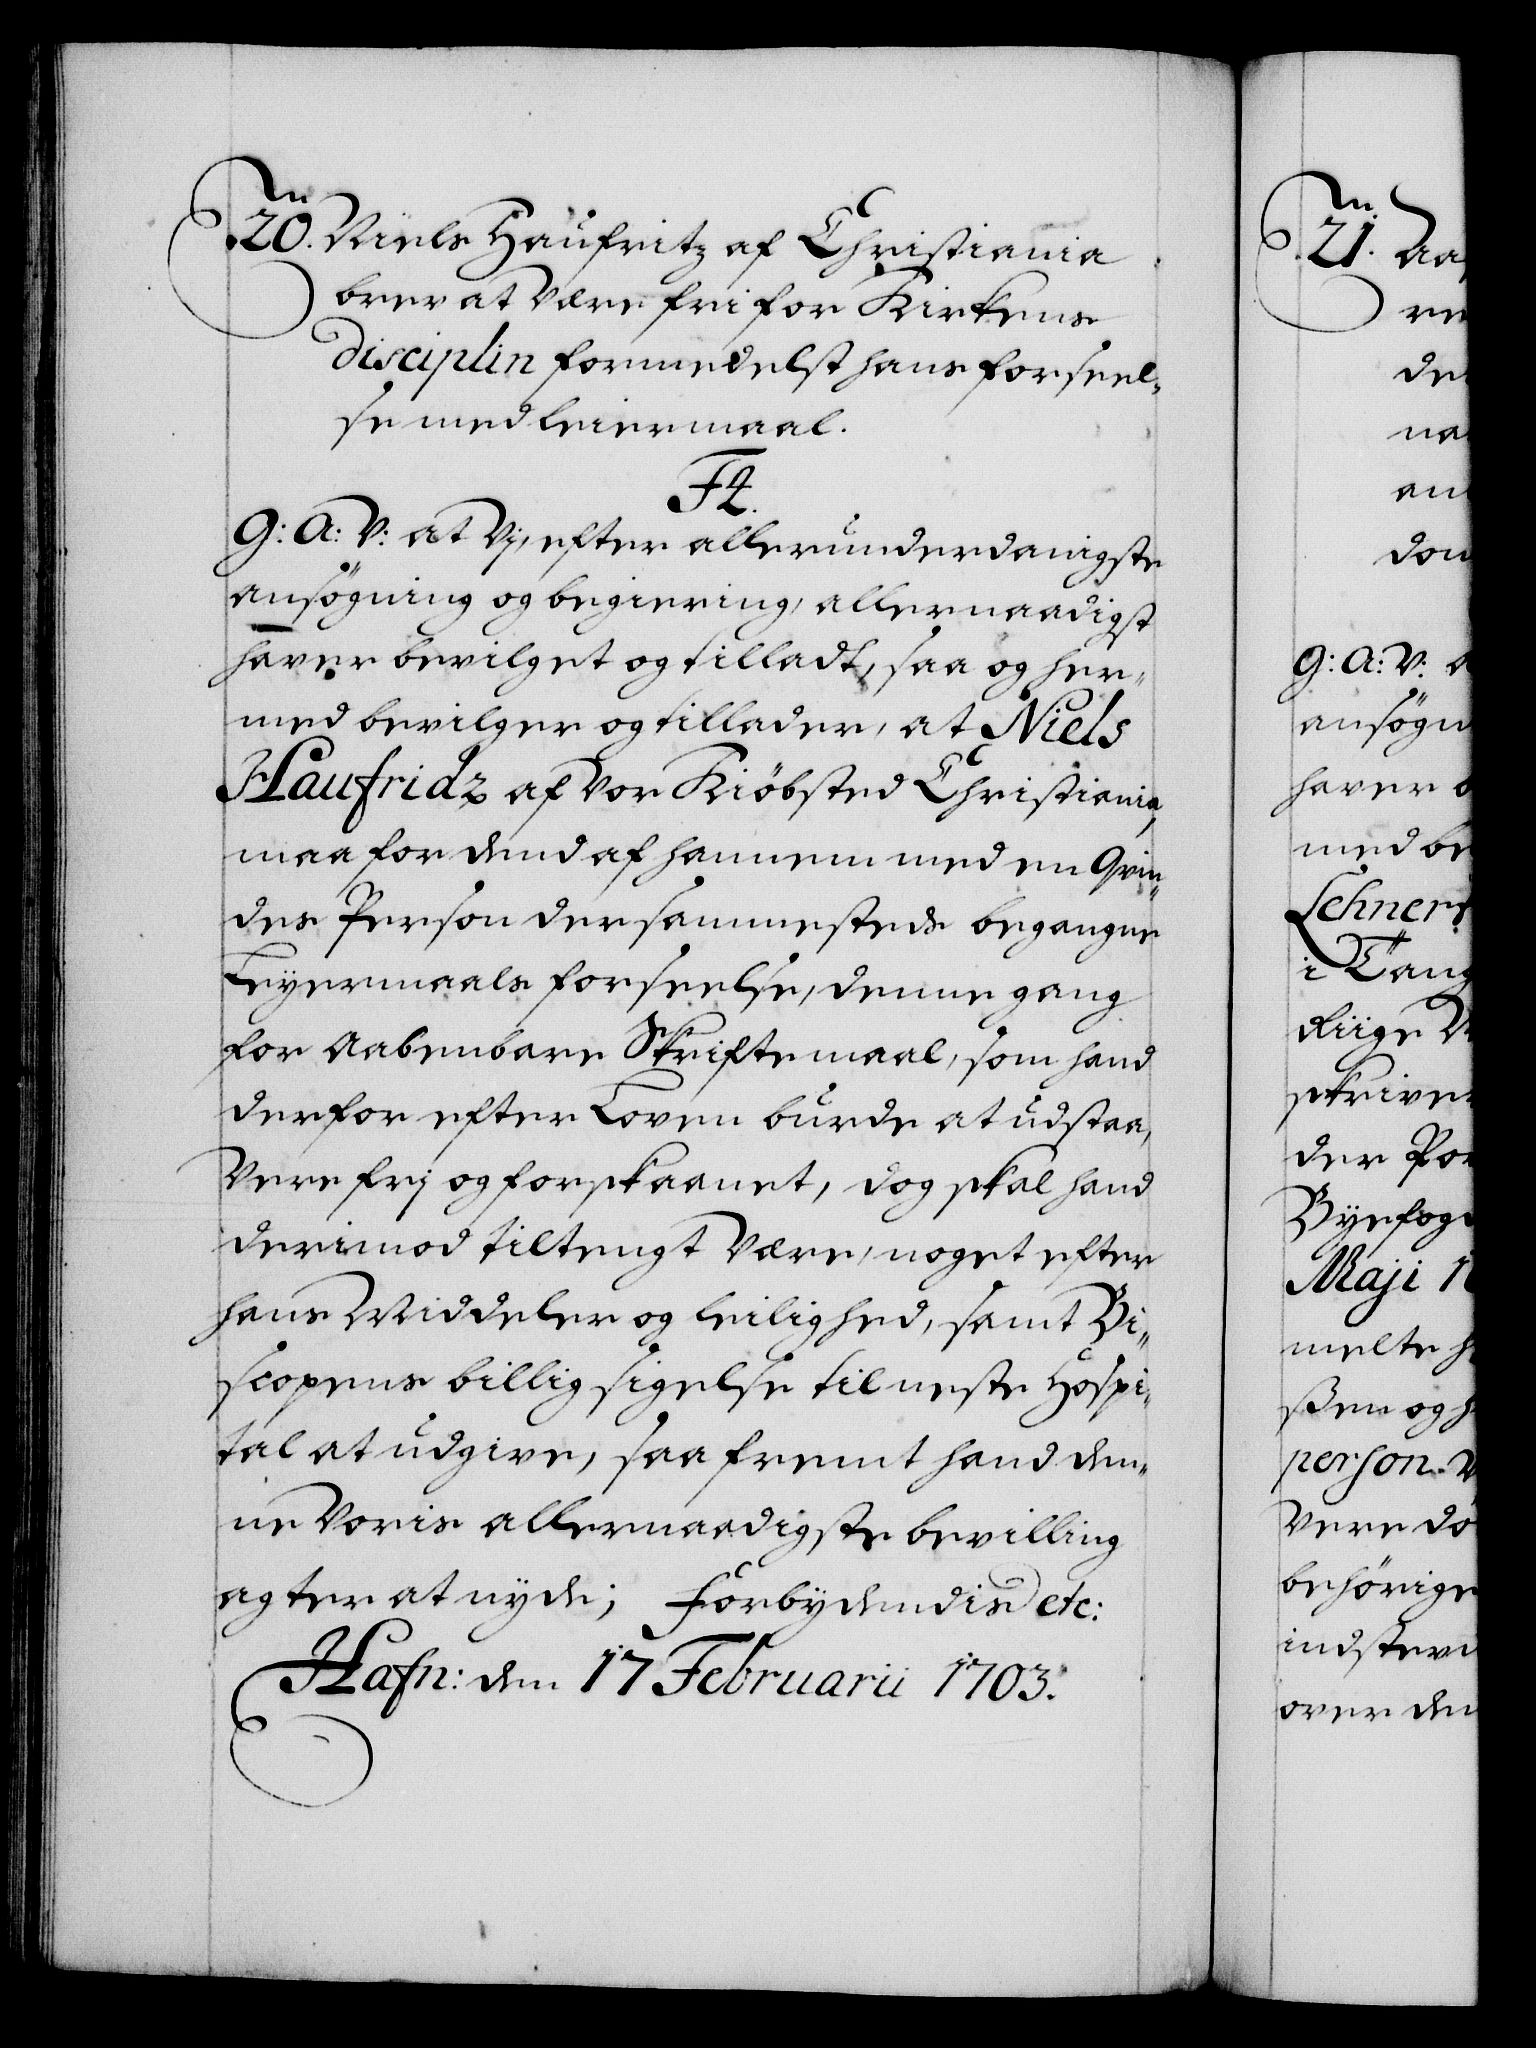 n
20. Niels Haufritz af Christiania
brev at være fri for Kirkens
disciplin formedelst hans forseel-
se med leiermaal.
F4.
G: A: V: at Vj, efter allerunderdanigste
ansögning og begiering, allernaadigst
haver bevilget og tilladt, saa og her-
med bevilger og tillader, at Niels
Haufridz af Vor Kiöbsted Christiania,
maa for dend af hannem med en Qvin-
des Person dersammesteds begangne
Leyermaals forseelse, denne gang
for Aabenbare Skriftemaal, som hand
derfor efter Loven burde at udstaa,
Vere frj og forskaanet, dog skal hand
derimod tiltengt Være, noget efter
hans Middeler og leilighed, samt Bi-
scopens billig sigelse til neste Hospi-
tal at udgive, saa fremt hand den-
ne Voris allernaadigste bevilling
agter at nyde; Forbydendis etc:
Hafn: den 17 Februarii 1703.
n
21. Aa
re
de
na
an
don
G: A: V: a
ansögn
haver b
med be
Lehner
i Tang
Riige
skriver
der Por
Byefog
Maji 1
melte h
ßen og h
person
Vere dö
behörige
indstevn
over den